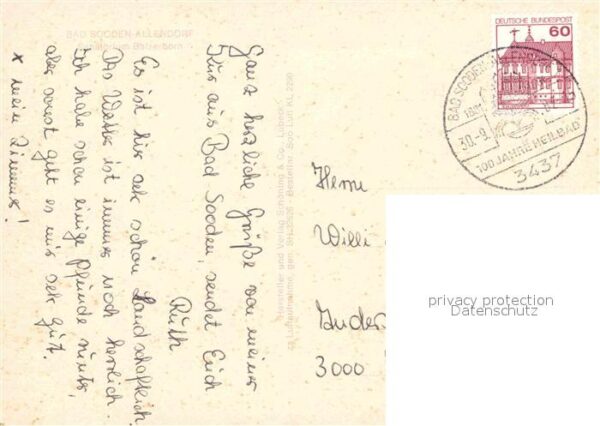 BAD SOODEN-ALLENDORF
Sanatorium Balzerborn
Ganz herzliche Grüße von meiner
Kur aus Bad Sooden, sendet Euch
Ruth
Es ist hier sehr schön Landschaftlich.
Das Wetter ist immer noch herrlich.
Ich habe schon einige Pfunde runter,
aber sonst geht es mir sehr gut.
x mein Zimmer!
Hersteller und Verlag Schöning & Co. · Lübeck
Luftaufnahme, gen. SH Bestellnr. Soo Luft KL 2290
DEUTSCHE BUNDESPOST
60
BAD SOODEN-ALLENDORF
30.-9.
100 JAHRE HEILBAD
3437
Herrn
Willi
3000
privacy protection
Datenschutz